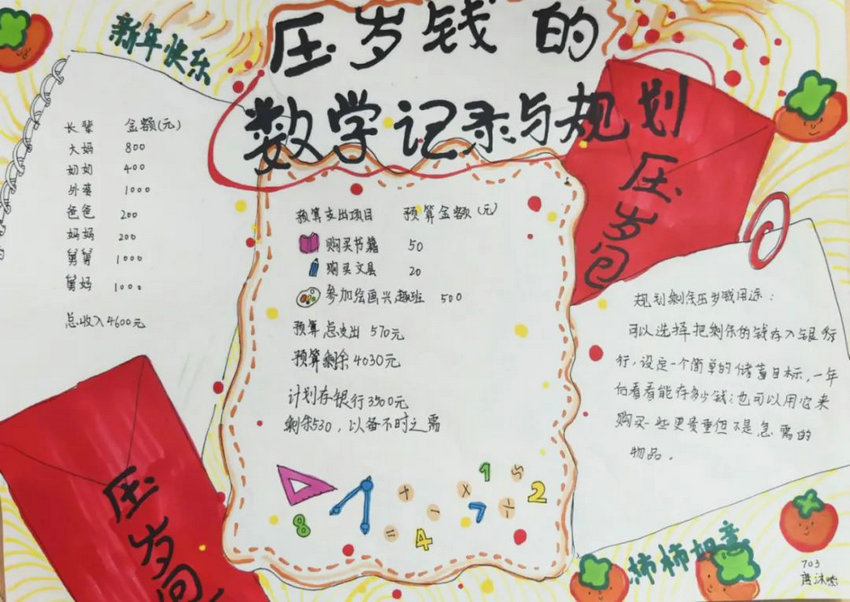 新年快乐
压岁钱的
数学记录与规划
长辈 金额(元)
大妈 800
奶奶 400
外婆 1000
爸爸 200
妈妈 200
舅舅 1000
舅妈 1000
总收入4600元
预算支出项目 预算金额(元)
购买书籍 50
购买文具 20
参加绘画兴趣班 500
预算总支出 570元
预算剩余 4030元
计划存银行3500元
剩余530,以备不时之需
压岁包
规划剩余压岁钱用途:
可以选择把剩余的钱存入银行
行,设定一个简单的储蓄目标,一年
后看看能存多少钱;也可以用它来
购买一些更贵重但不是急需的
物品。
压岁包
1 5
+ × 2
- 7 ÷
8 = 4
柿柿如意
703